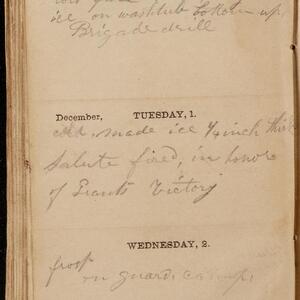 ice on washtub bottom up
Brigade drill
December, TUESDAY, 1.
cold, made ice 1/4 inch thick
Salute fired, in honor
of Grants Victory
WEDNESDAY, 2.
frost
on guard, camp,